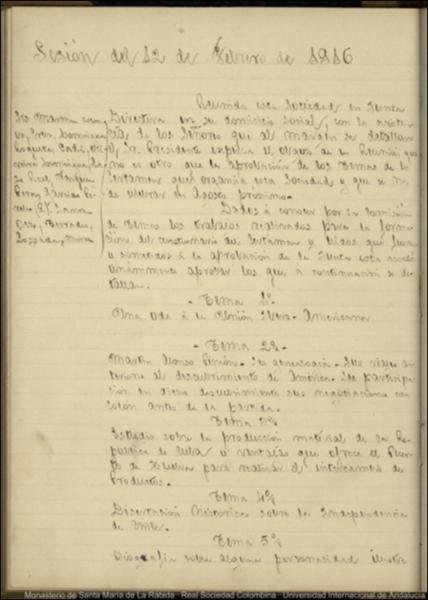 Sesión del 12 de Febrero de 1916
Reunida esta Sociedad en Junta
Directiva en su domicilio social, con la asisten
cia de los Señores que al margen se detallan
el Sr. Presidente explica el objeto de la Reunión que
no es otro que la aprobación de los temas de la
Certamen que organiza esta Sociedad y que se ha
de celebrar en Agosto próximo.
Dados á conocer por la Comisión
de temas los trabajos realizados para la forma
ción del cuestionario del Certamen y leidos que fue
sometidos á la aprobación de la Junta esta acordó
unánimemente aprobar los que á continuación se de
tallan.
- Tema 1º
Una oda á la Unión Ibero-Americana
- Tema 2º -
Martín Alonso Pinzón. Su genealogía. Sus viajes an
teriores al descubrimiento de América. Su participa
ción en dicho descubrimiento sus negociaciones con
Colón antes de la partida.
Tema 3º
Estudio sobre la producción material de la Re
pública de Cuba y ventajas que ofrece el Puer
to de Huelva para realizar el intercambio de
Productos.
Tema 4º
Disertación Histórica sobre la Independencia
de Chile.
Tema 5º
Biografía sobre alguna personalidad ilustre
Monasterio de Santa María de La Rábida . Real Sociedad Colombina . Universidad Internacional de Andalucía